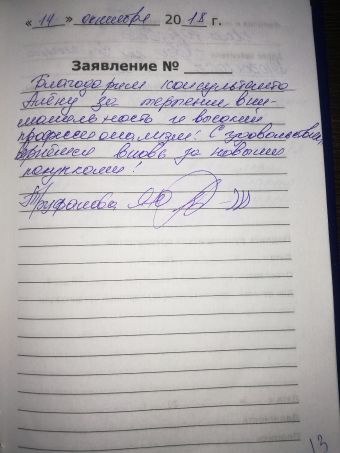 « 14 » октября 2018 г.
Заявление №
Благодарим консультанта
Алёну за терпение, вни-
мательность и высокий
профессионализм! С удовольствием
вернёмся вновь за новыми
покупками!
Труфанова
13